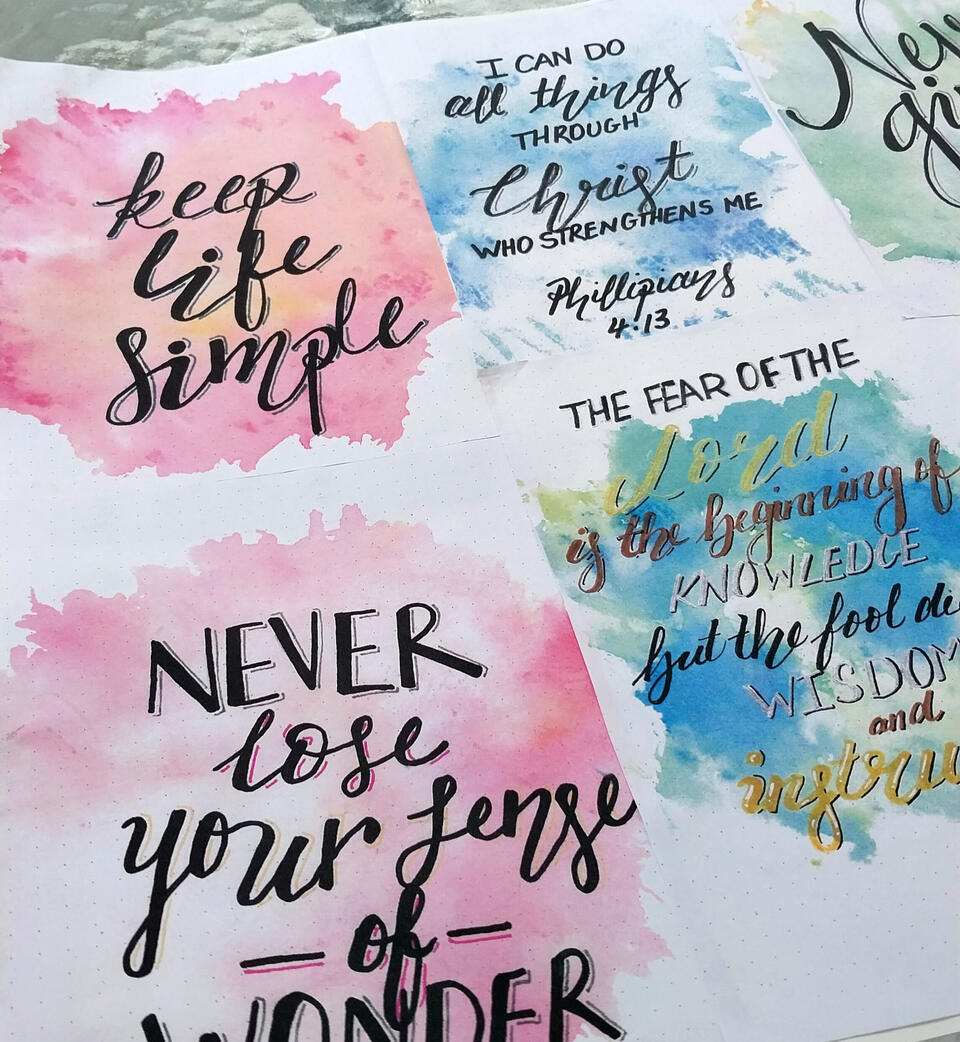 keep
life
simple
I CAN DO
all things
THROUGH
Christ
WHO STRENGTHENS ME
Phillipians
4:13
NEVER
lose
your sense
— of —
WONDER
THE FEAR OF THE
Lord
is the beginning of
KNOWLEDGE
but the fool
WISDOM
and